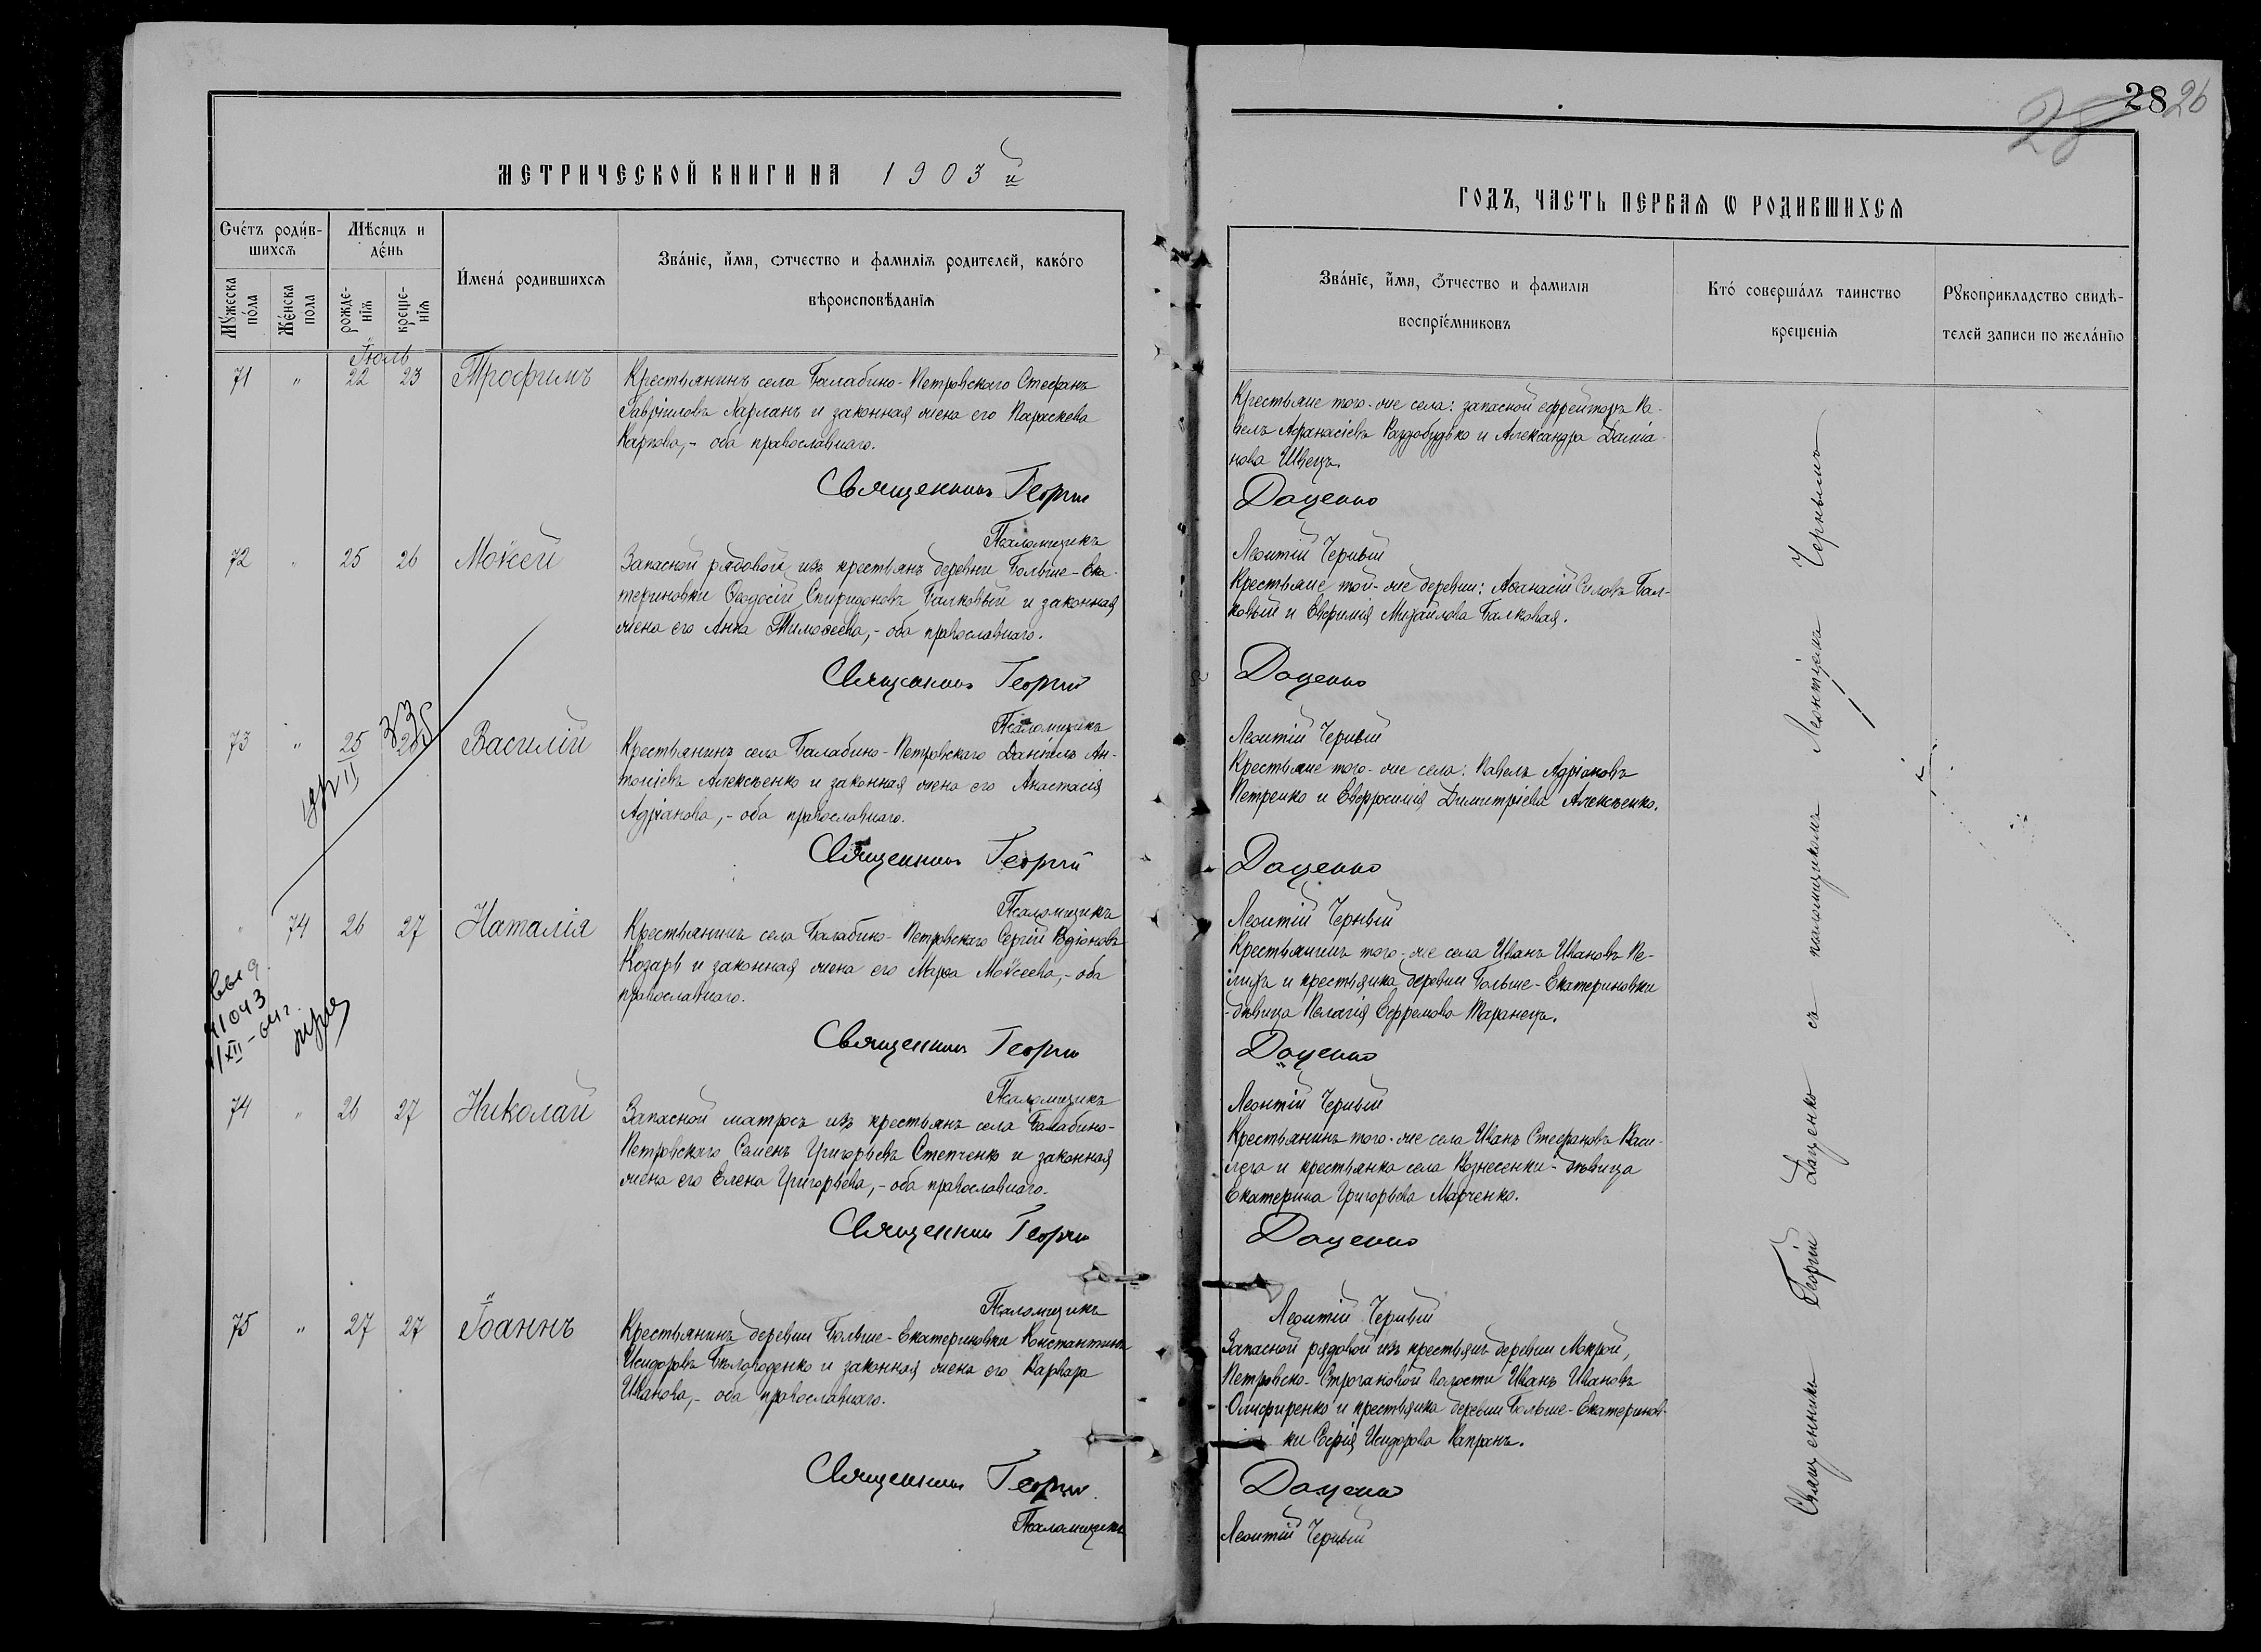 28 26
28
МЕТРИЧЕСКОЙ КНИГИ НА 1903 й
ГОДЪ, ЧАСТЬ ПЕРВАЯ Ѡ РОДИВШИХСЯ
Счетъ родив-
шихся
Мѣсяцъ и
день
Мужеска
пола
Женска
пола
рожде-
нія
креще-
нія
Имена родившихся
Званіе, имя, отчество и фамилія родителей, какого
вѣроисповѣданія
Званіе, имя, отчество и фамилія
воспріемниковъ
Кто совершалъ таинство
крещенія
Рукоприкладство свидѣ-
телей записи по желанію
Іюль
71 " 22 23 Трофимъ
Крестьянинъ села Балабино-Петровскаго Стефанъ
Гавріиловъ Харланъ и законная жена его Параскева
Карпова,- оба православнаго.
Крестьяне того-же села: запасной ефрейторъ Па-
велъ Афанасіевъ Раздобудько и Александра Даміа-
нова Швецъ.
Священникъ Георгій Даценко
Псаломщикъ Леонтій Черный
72 " 25 26 Моѵсей
Запасной рядовой изъ крестьянъ деревни Больше-Ека-
териновки Ѳеодосій Спиридоновъ Балковый и законная
жена его Анна Тимоѳеева,- оба православнаго.
Крестьяне той-же деревни: Аѳанасій Силовъ Бал-
ковый и Евфимія Михайлова Балковая.
Священникъ Георгій Даценко
Псаломщикъ Леонтій Черный
73 " 25 26 Василій
335
Крестьянинъ села Балабино-Петровскаго Даніилъ Ан-
тоніевъ Алексѣенко и законная жена его Анастасія
Адріанова,- оба православнаго.
Крестьяне того-же села: Павелъ Адріановъ
Петренко и Евфросинія Димитріева Алексѣенко.
Священникъ Георгій Даценко
Псаломщикъ Леонтій Черный
" 74 26 27 Наталія
Крестьянинъ села Балабино-Петровскаго Сергій Родіоновъ
Козарь и законная жена его Марѳа Моѵсеева,- оба
православнаго.
Крестьянинъ того-же села Иванъ Ивановъ
и крестьянка деревни Больше-Екатериновки
-дѣвица Пелагія Ефремова Таранецъ.
Священникъ Георгій Даценко
Псаломщикъ Леонтій Черный
1043
XII-04г.
74 " 26 27 Николай
Запасной матросъ изъ крестьянъ села Балабино-
Петровскаго Семенъ Григорьевъ Степченко и законная
жена его Елена Григорьева,- оба православнаго.
Крестьянинъ того-же села Иванъ Стефановъ Васи-
лега и крестьянка села Вознесенки-дѣвица
Екатерина Григорьева Марченко.
Священникъ Георгій Даценко
Псаломщикъ Леонтій Черный
75 " 27 27 Іоаннъ
Крестьянинъ деревни Больше-Екатериновки Константинъ
Исидоровъ Бѣлогоденко и законная жена его Варвара
Иванова,- оба православнаго.
Запасной рядовой изъ крестьянъ деревни Мокрой,
Петровско- волости Иванъ Ивановъ
Олифиренко и крестьянка деревни Больше-Екатеринов-
ки Исидорова Капранъ.
Священникъ Георгій Даценко
Псаломщикъ Леонтій Черный
Священникъ Георгій Даценко съ псаломщикомъ Леонтіемъ Чернымъ